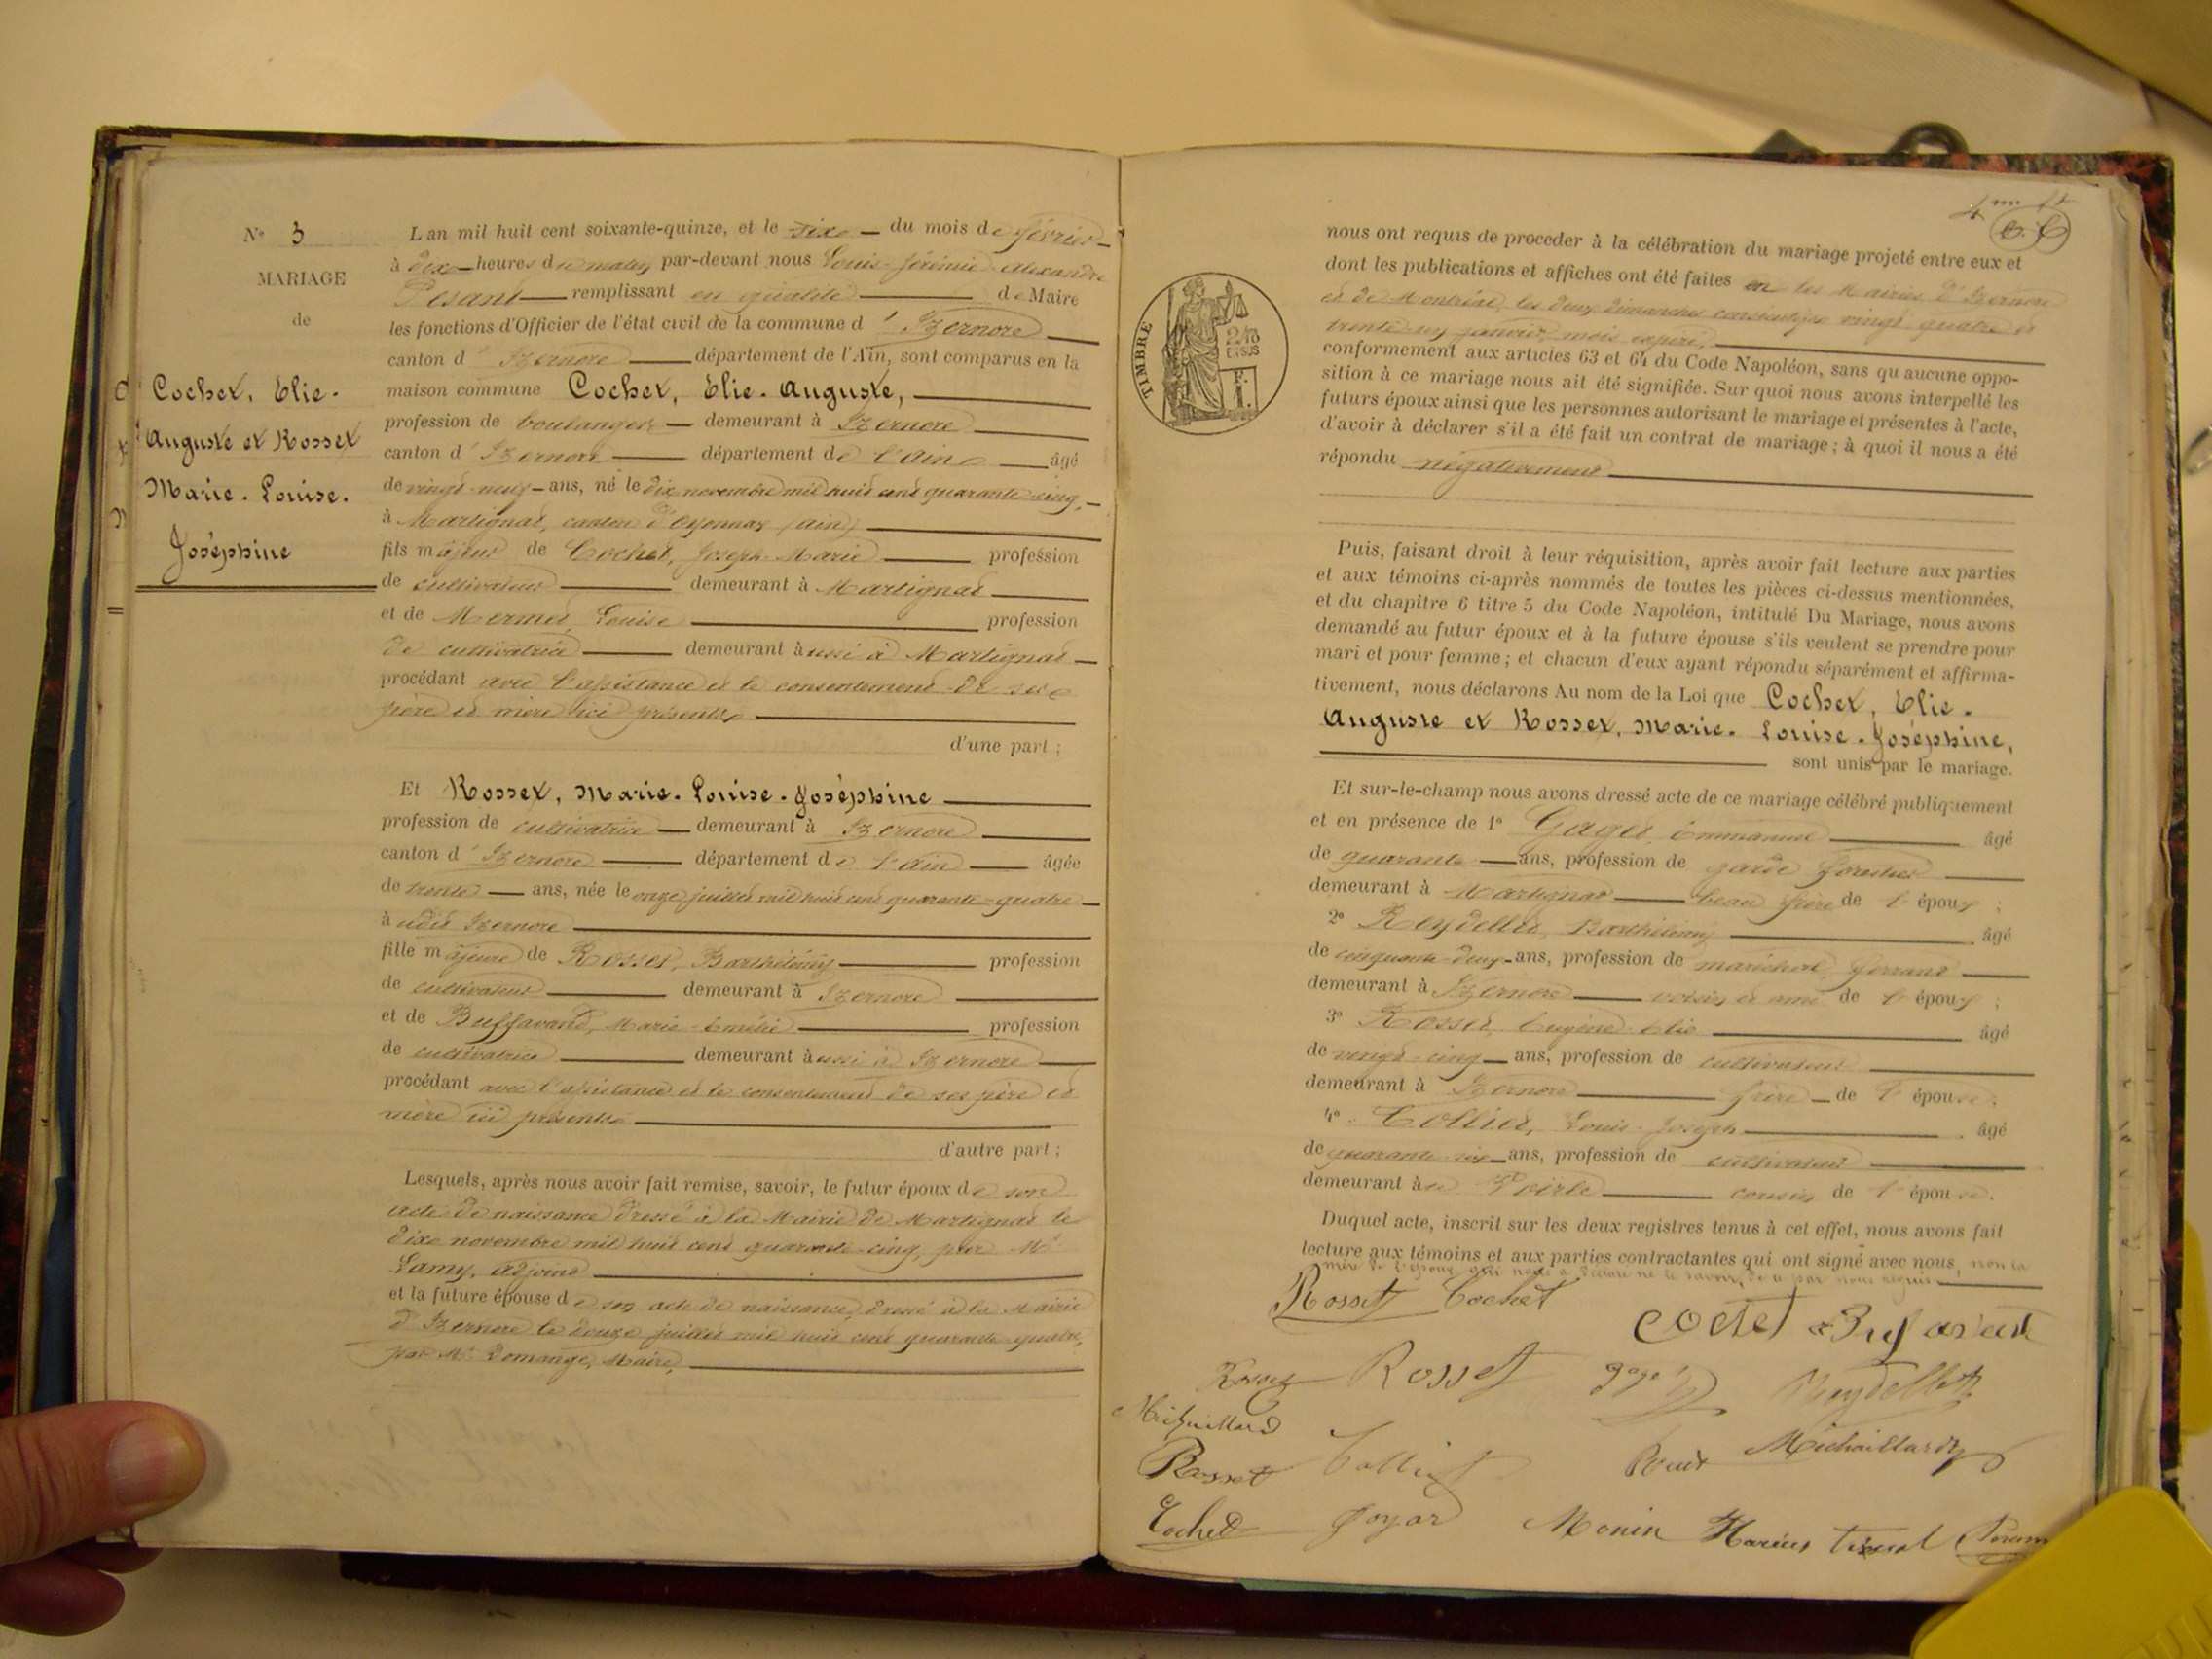 N° 3
MARIAGE
de
Cochet, Elie.
Auguste et Rosset
Marie. Louise.
Joséphine
L'an mil huit cent soixante-quinze, et le six du mois de février
à dix heures du matin par-devant nous Louis-Jérémie-Alexandre
remplissant en qualité de Maire
les fonctions d'Officier de l'état civil de la commune d'Izernore
canton d'Izernore département de l'Ain, sont comparus en la
maison commune Cochet, Elie. Auguste,
profession de boulanger demeurant à Izernore
canton d'Izernore département de l'Ain âgé
de vingt-neuf ans, né le dix novembre mil huit cent quarante-cinq,
à Martignat, canton d'Oyonnax (Ain)
fils majeur de Cochet, Joseph-Marie profession
de cultivateur demeurant à Martignat
et de Mermet, Louise profession
de cultivatrice demeurant aussi à Martignat
procédant avec l'assistance et le consentement de ses
père et mère ici présents
d'une part ;
Et Rosset, Marie. Louise. Joséphine
profession de cultivatrice demeurant à Izernore
canton d'Izernore département de l'Ain âgée
de trente ans, née le onze juillet mil huit cent quarante-quatre
à udit Izernore
fille majeure de Rosset, Barthélemy profession
de cultivateur demeurant à Izernore
et de Buffavand, Marie-Emélie profession
de cultivatrice demeurant aussi à Izernore
procédant avec l'assistance et le consentement de ses père et
mère ici présents
d'autre part ;
Lesquels, après nous avoir fait remise, savoir, le futur époux de son
acte de naissance dressé à la Mairie de Martignat le
dix novembre mil huit cent quarante-cinq, par Mr
Lamy, adjoint
et la future épouse de son acte de naissance, dressé à la Mairie
d'Izernore le douze juillet mil huit cent quarante-quatre,
par Mr Domange, Maire,
TIMBRE
nous ont requis de procéder à la célébration du mariage projeté entre eux et
dont les publications et affiches ont été faites en les Mairies d'Izernore
et de Montréal, les deux dimanches consécutifs vingt-quatre et
trente-un janvier, mois expiré,
conformément aux articles 63 et 64 du Code Napoléon, sans qu'aucune oppo-
sition à ce mariage nous ait été signifiée. Sur quoi nous avons interpellé les
futurs époux ainsi que les personnes autorisant le mariage et présentes à l'acte,
d'avoir à déclarer s'il a été fait un contrat de mariage ; à quoi il nous a été
répondu négativement
Puis, faisant droit à leur réquisition, après avoir fait lecture aux parties
et aux témoins ci-après nommés de toutes les pièces ci-dessus mentionnées,
et du chapitre 6 titre 5 du Code Napoléon, intitulé Du Mariage, nous avons
demandé au futur époux et à la future épouse s'ils veulent se prendre pour
mari et pour femme ; et chacun d'eux ayant répondu séparément et affirma-
tivement, nous déclarons Au nom de la Loi que Cochet, Elie.
Auguste et Rosset, Marie. Louise. Joséphine,
sont unis par le mariage.
Et sur-le-champ nous avons dressé acte de ce mariage célébré publiquement
et en présence de 1° Gaget, Emmanuel âgé
de quarante ans, profession de garde forestier
demeurant à Martignat beau frère de l'époux ;
2° Reydellet, Barthélemy âgé
de cinquante-deux ans, profession de maréchal ferrant
demeurant à Izernore voisin et ami de l'époux ;
3° Rosset, Eugène-Elie âgé
de vingt-cinq ans, profession de cultivateur
demeurant à Izernore frère de l'épouse.
4° Colliet, Louis-Joseph âgé
de quarante-six ans, profession de cultivateur
demeurant à cousin de l'épouse.
Duquel acte, inscrit sur les deux registres tenus à cet effet, nous avons fait
lecture aux témoins et aux parties contractantes qui ont signé avec nous, non la
mère de l'époux qui nous a déclaré ne le savoir, de ce par nous requis
Rosset Cochet
Cochet Bufavant
Rosset Rosset gaget Reydellet
Michaillard
Rosset Colliet Michaillard
Cochet goyar Monin Marius